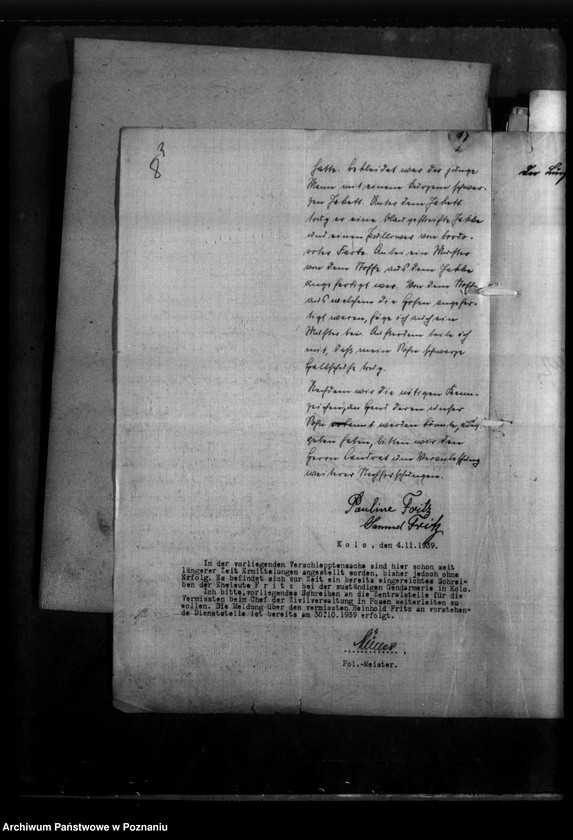 83
hatte. Bekleidet war der junge
Mann mit einem kurzem schwar-
zen Jakett. Unter dem Jakett
trug er eine blaugestreifte Jakke
und einen Pullower von bordo-
roter Farbe. Anbei ein Muster
von dem Stoffe aus dem Jakke
angefertigt war. Von dem Stoffe
aus welchem die Hosen angefer-
tigt waren, füge ich auch ein
Muster bei. Ausserdem teile ich
mit, daß mein Sohn schwarze
Halbschuhe trug.
Nachdem wir die nötigen Kenn-
zeichen, an Hand deren unser
Sohn erkannt werden könnte,
geben haben, bitten wir den
Herrn Landrat um Veranlassung
weiterer Nachforschungen.
Pauline Fritz
Samuel Fritz
Kolo, den 4.11.1939.
In der vorliegenden Verschlepptensache sind hier schon seit
längerer Zeit Ermittelungen angestellt worden, bisher jedoch ohne
Erfolg. Es befindet sich zur Zeit ein bereits eingereichtes Schrei-
ben der Eheleute Frits bei der zuständigen Gendarmerie in Kolo.
Ich bitte, vorliegendes Schreiben an die Zentralstelle für die
Vermissten beim Chef der Zivilverwaltung in Posen weiterleiten zu
wollen. Die Meldung über den vermissten Reinhold Frits an vorstehen-
de Dienststelle ist bereits am 30.10.1939 erfolgt.
Pol.-Meister.
Der
Archiwum Państwowe w Poznaniu